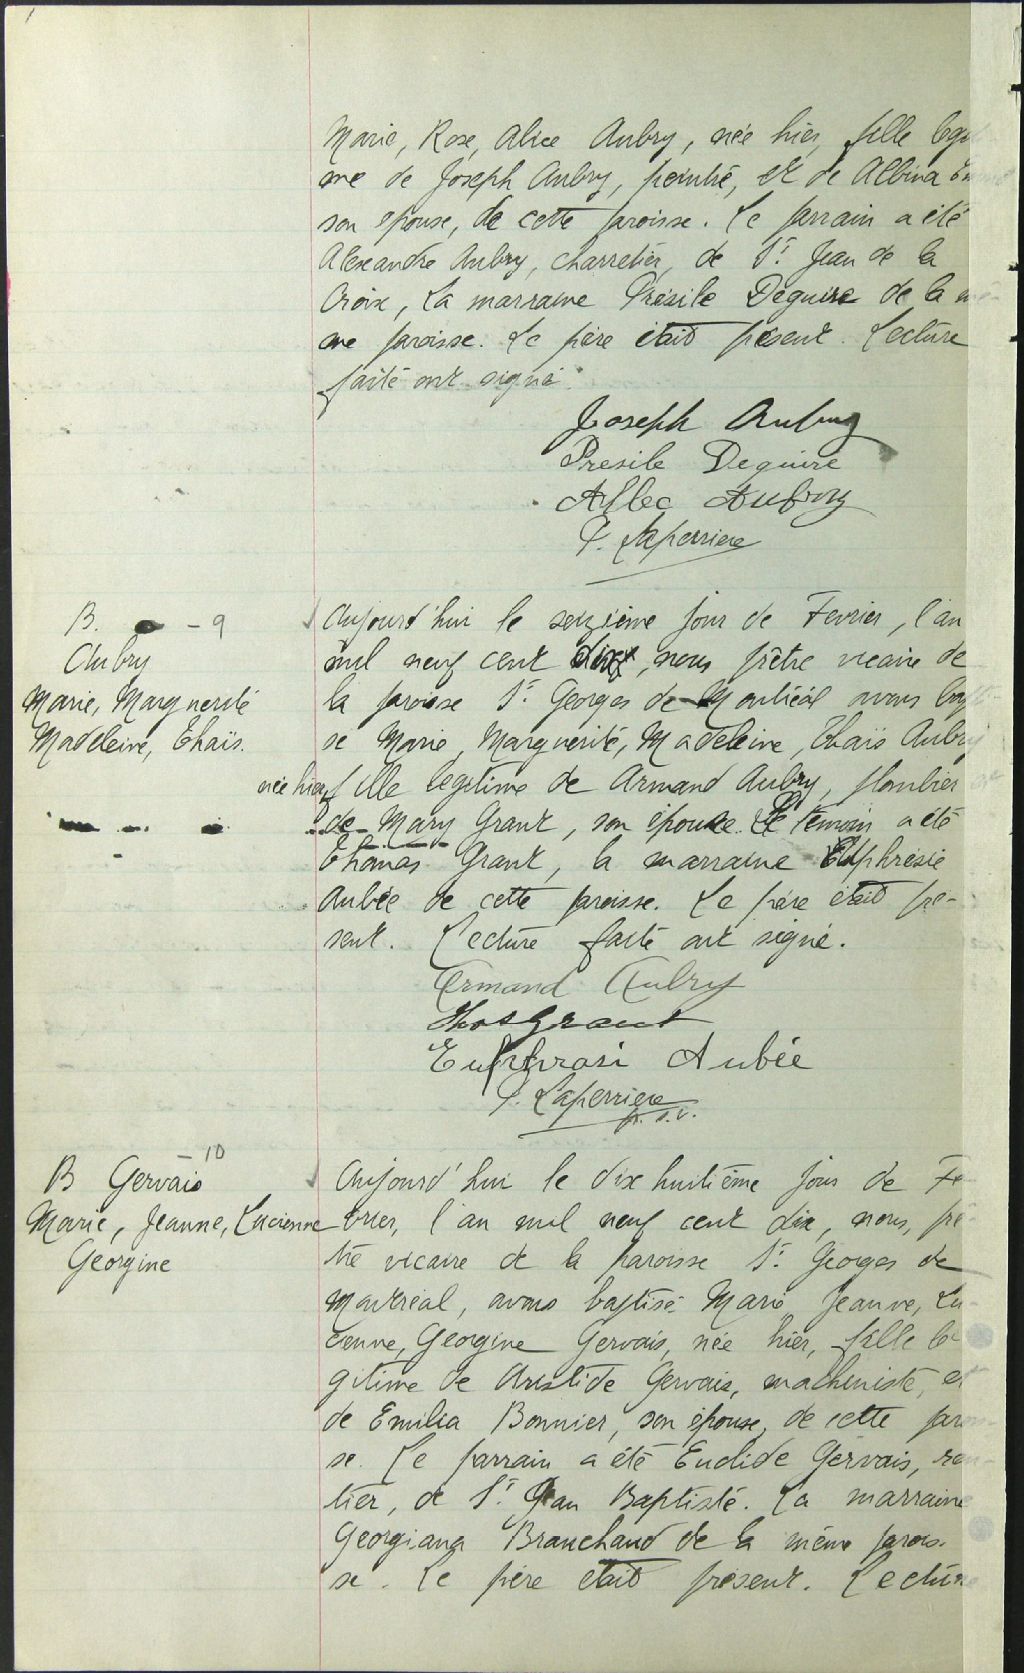 Marie, Rose, Alice Aubry, née hier, fille légi
me de Joseph Aubry, peintre, et de Albina
son épouse, de cette paroisse. Le parrain a été
Alexandre Aubry, charretier, de St. Jean de la
Croix, La marraine Présile Deguire de la mê-
me paroisse. Le père était présent. Lecture
faite ont signé.
Joseph Aubry
Presile Deguire
Aubry
P. Laperriere
B. - 9
Aubry
Marie, Marguerite
Madeleine, Thaïs.
Aujourd'hui le seizième jour de Fevrier, l'an
mil neuf cent dix, nous prêtre vicaire de
la paroisse St. Georges de Montréal avons bapti-
sé Marie, Marguerite, Madeleine, Thaïs Aubry
née hier, fille légitime de Armand Aubry, plombier et
de Mary Grant, son épouse. Le témoin a été
Thomas Grant, la marraine Euphrésie
Aubée de cette paroisse. Le père était pré-
sent. Lecture faite ont signé.
Armand Aubry
Thos Grant
Euphrasi Aubée
P. Laperriere
p. s. v.
B Gervais 10
Marie, Jeanne, Lucienne
Georgine
Aujourd'hui le dix huitième jour de Fe-
vrier, l'an mil neuf cent dix, nous, prê-
tre vicaire de la paroisse St. Georges de
Montréal, avons baptisé Marie, Jeanne, Lu-
cienne, Georgine Gervais, née hier, fille lé-
gitime de Aristide Gervais, machiniste, et
de Emilia Bonnier, son épouse, de cette parois-
se. Le parrain a été Euclide Gervais, ren-
tier, de St. Jean Baptiste. La marraine
Georgiana Branchaud de la même parois-
se. Le père était présent. Lecture